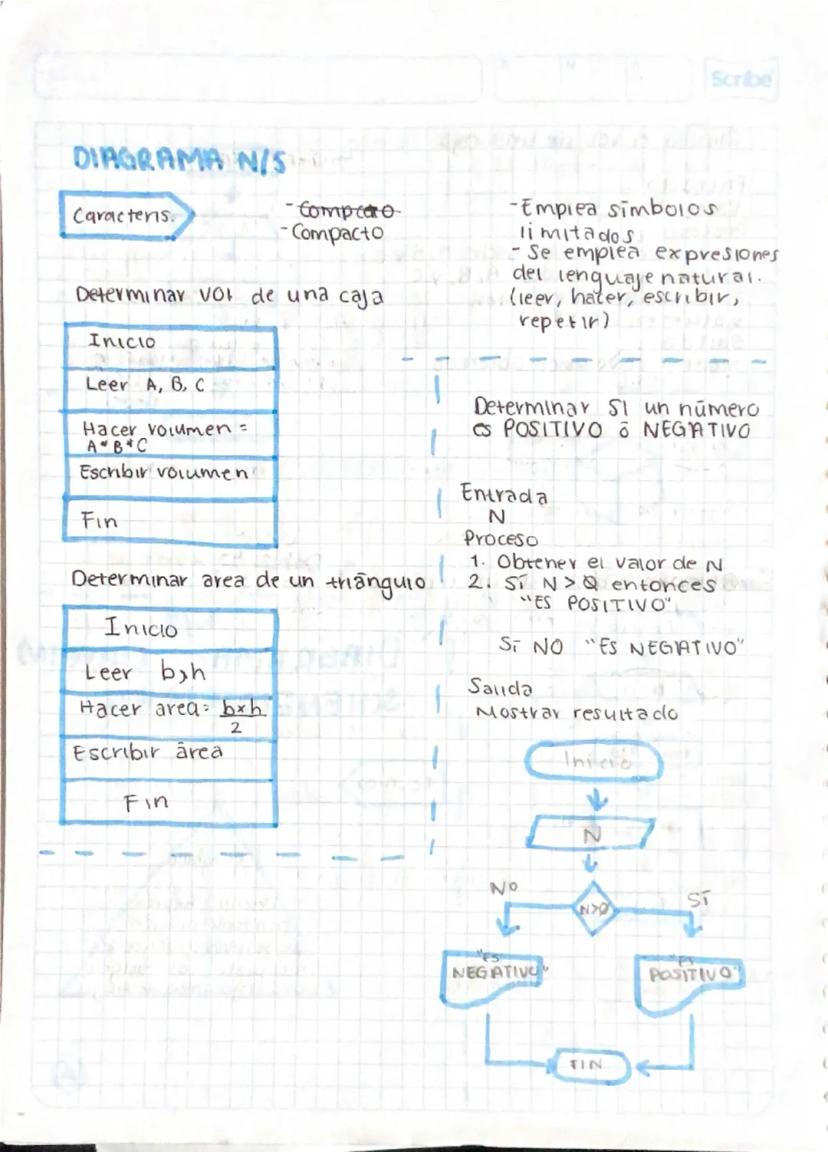 Scribe
DIAGRAMA N/S
Caracteris.
- Compacto
- Emplea símbolos
limitados
- Se emplea expresiones
del lenguaje natural.
(leer, hater, escribir,
repetir)
Determinar vol de una caja
Inicio
Leer A, B, C
Hacer volumen =
A*B*C
Escribir volumen
Fin
Determinar area de un triángulo
Inicio
Leer b,h
Hacer area= bxh
2
Escribir área
Fin
Determinar SI un número
es POSITIVO ó NEGATIVO
Entrada
N
Proceso
1. Obtener el valor de N
2. Sí N>0 entonces
"ES POSITIVO"
Sí NO "ES NEGATIVO"
Salida
Mostrar resultado
Inicio
N
N>0
NO
SÍ
"ES
NEGATIVO"
"ES
POSITIVO"
FIN